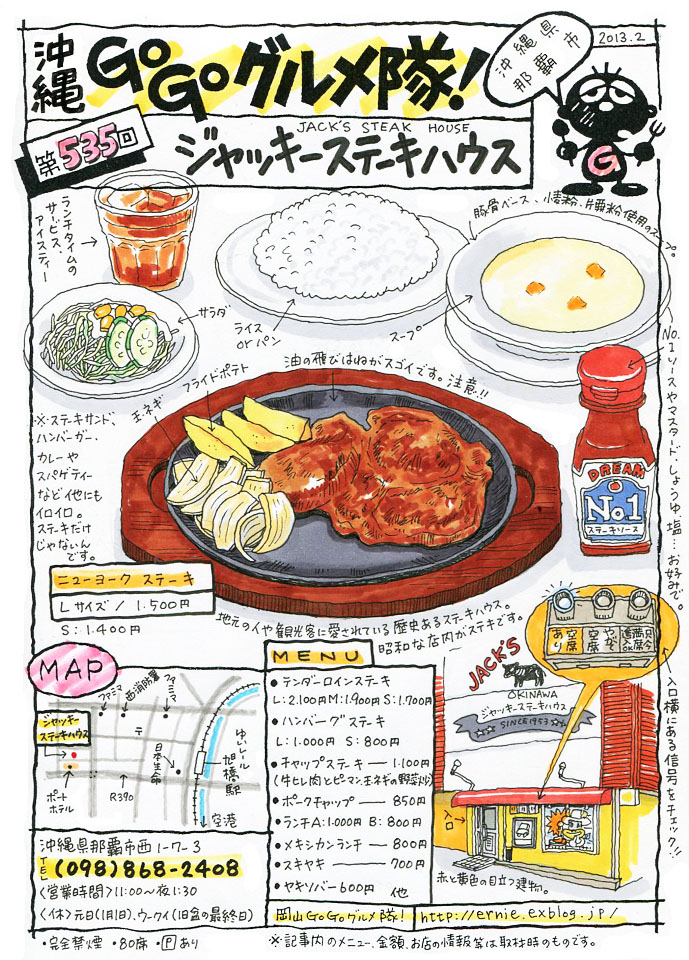 沖縄
GoGoグルメ隊!
沖縄県
那覇市
2013.2
第535回
JACK'S STEAK HOUSE
ジャッキーステーキハウス
G
ランチタイムの
サービス、
アイスティー
豚骨ベース、
使用のスープ。
サラダ
ライス
or パン
スープ
No.1ソースやマスタード、しょうゆ、塩…お好みで。
油の飛びはねがスゴイです。注意!!
フライドポテト
玉ネギ
※ステーキサンド、
ハンバーガー、
カレーや
スパゲティー
など他にも
イロイロ。
ステーキだけ
じゃないん
です。
DREAM
No.1
ステーキソース
ニューヨーク ステーキ
Lサイズ/1.500円
S:1.400円
地元の人や観光客に愛されている歴史あるステーキハウス。
昭和な店内がステキです。
MAP
ファミマ
西消防署
ファミマ
ジャッキー
ステーキハウス
〒
日本生命
ゆいレール
旭橋駅
ポート
ホテル
R390
空港
沖縄県那覇市西1-7-3
TEL(098)868-2408
〈営業時間〉11:00〜夜1:30
〈休〉元日(1月1日)、ウークイ(旧盆の最終日)
・完全禁煙 ・80席 ・Pあり
MENU
・テンダーロインステーキ
L:2.100円 M:1.900円 S:1.700円
・ハンバーグステーキ
L:1.000円 S:800円
・チャップステーキ―1.100円
(牛ヒレ肉とピーマン、玉ネギの野菜炒)
・ポークチャップ―850円
・ランチA:1.000円 B:800円
・メキシカンランチ―800円
・スキヤキ―700円
・ヤキソバー600円 他
JACK'S
OKINAWA
ジャッキーステーキハウス
SINCE1953
空席あり
やや空席
只今満席
入口横にある信号をチェック!!
入口
赤と黄色の目立つ建物。
岡山GoGoグルメ隊!
http://ernie.exblog.jp/
※記事内のメニュー、金額、お店の情報等は取材時のものです。